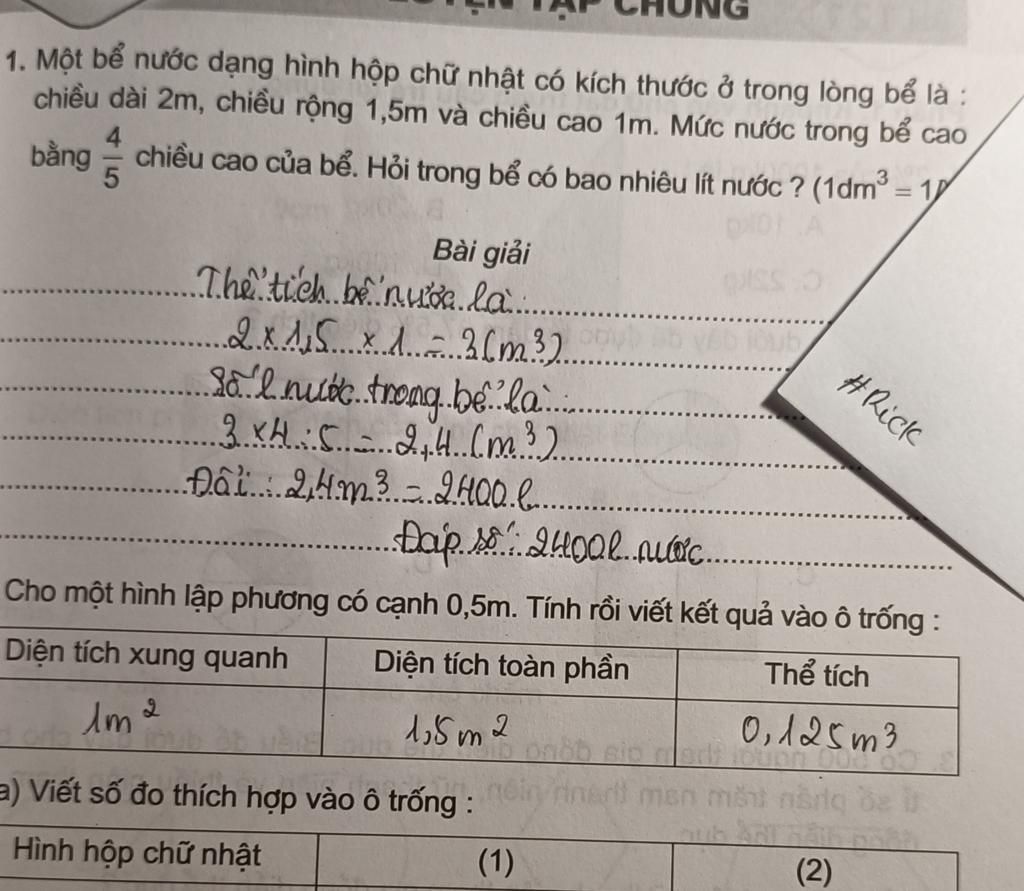 LUYỆN TẬP CHUNG
1. Một bể nước dạng hình hộp chữ nhật có kích thước ở trong lòng bể là :
chiều dài 2m, chiều rộng 1,5m và chiều cao 1m. Mức nước trong bể cao
bằng 4/5 chiều cao của bể. Hỏi trong bể có bao nhiêu lít nước ? (1dm³ = 1
Bài giải
Thể tích bể nước là
2 x 1,5 x 1 = 3 (m³)
Số l nước trong bể là :
3 x 4 : 5 = 2,4 (m³)
Đổi : 2,4m³ = 2400l
Đáp số : 2400l nước
#Rick
Cho một hình lập phương có cạnh 0,5m. Tính rồi viết kết quả vào ô trống :
Diện tích xung quanh Diện tích toàn phần Thể tích
1m² 1,5m² 0,125m³
a) Viết số đo thích hợp vào ô trống :
Hình hộp chữ nhật (1) (2)